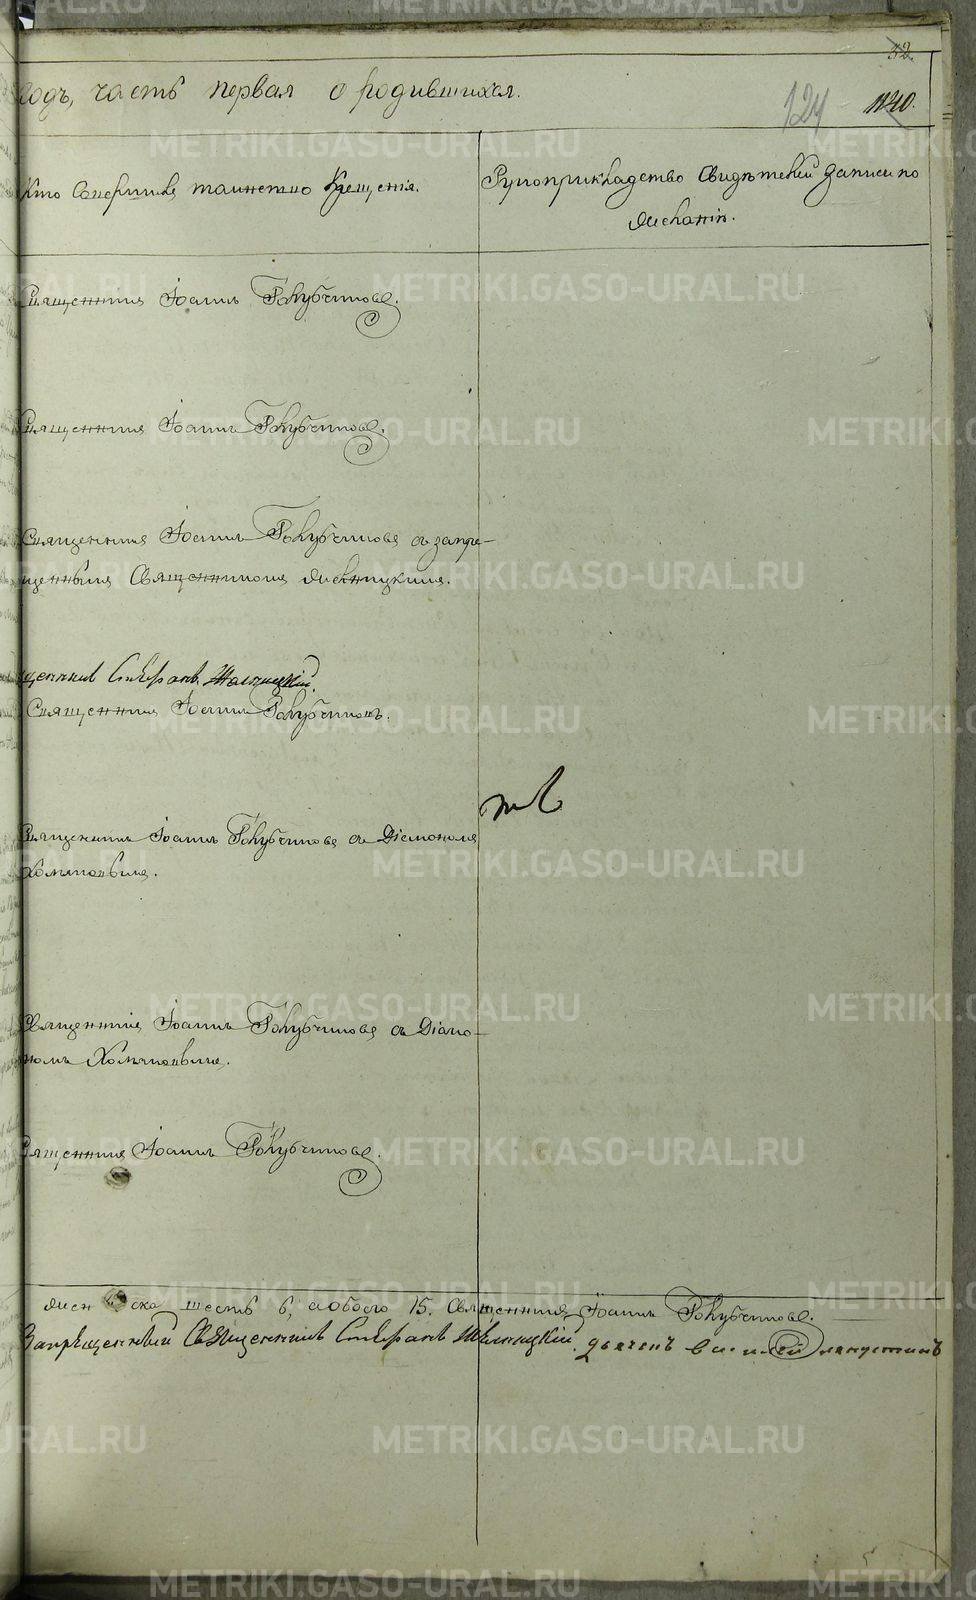 годъ, часть первая о родившихся.
124
1140.
Кто совершилъ таинство Крещенія.
Рукоприкладство Свидѣтелей записи по
желанію.
Священникъ Іоаннъ Голубчиковъ.
Священникъ Іоаннъ Голубчиковъ.
Священникъ Іоаннъ Голубчиковъ съ запре-
щеннымъ Священникомъ
щенникъ Стефанъ
Священникъ Іоаннъ Голубчиковъ.
Священникъ Іоаннъ Голубчиковъ съ Діакономъ
Священникъ Іоаннъ Голубчиковъ съ Діако-
номъ
Священникъ Іоаннъ Голубчиковъ.
женска шесть 6, а обоего 15. Священникъ Іоаннъ Голубчиковъ.
Запрещенный Священникъ Стефанъ дьячекъ
METRIKI.GASO-URAL.RU